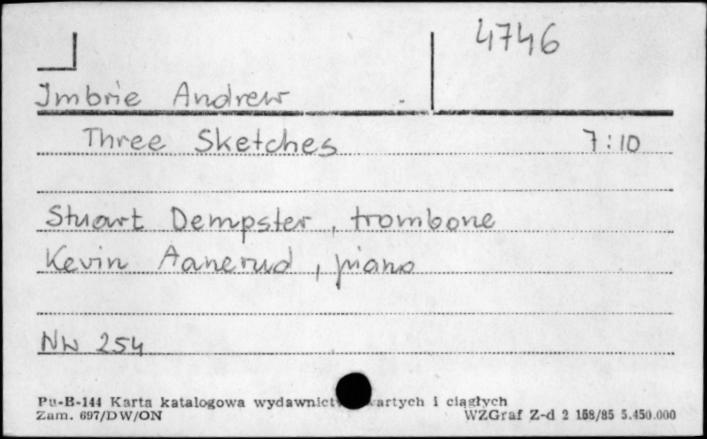 4746
Imbrie Andrew
Three Sketches 7:10
Stuart Dempster, trombone
Kevin Aanerud, piano
NW 254
Pu-B-144 Karta katalogowa i ciągłych
Zam. 697/DW/ON WZGraf Z-d 2 158/85 5.450.000